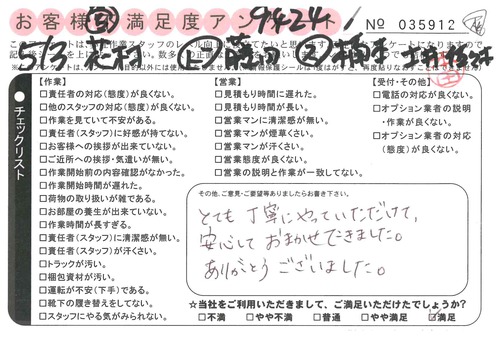 お客様満足度アンケート
9424
No 035912
5/3
●チェックリスト
【作業】
□責任者の対応(態度)が良くない。
□他のスタッフの対応(態度)が良くない。
□作業を見ていて不安がある。
□責任者(スタッフ)に好感が持てない。
□お客様への挨拶が出来ていない。
□ご近所への挨拶・気遣いが無い。
□作業開始前の内容確認がなかった。
□作業開始時間が遅れた。
□荷物の取り扱いが雑である。
□お部屋の養生が出来ていない。
□作業時間が長すぎる。
□責任者(スタッフ)に清潔感が無い。
□責任者(スタッフ)が汗くさい。
□トラックが汚い。
□梱包資材が汚い。
□運転が不安(下手)である。
□靴下の履き替えをしてない。
□スタッフにやる気がみられない。
【営業】
□見積もり時間に遅れた。
□見積もり時間が長い。
□営業マンに清潔感が無い。
□営業マンが煙草くさい。
□営業マンが汗くさい。
□営業態度が良くない。
□営業の説明と作業が一致してない。
【受付・その他】
□電話の対応が良くない。
□オプション業者の説明
・作業が良くない。
□オプション業者の対応
(態度)が良くない。
その他、ご意見・ご要望等ありましたらお書き下さい。
とても丁寧にやっていただけて、
安心しておまかせできました。
ありがとうございました。
☆当社をご利用いただきまして、ご満足いただけたでしょうか?
□不満 □やや不満 □普通 □やや満足 ☑満足